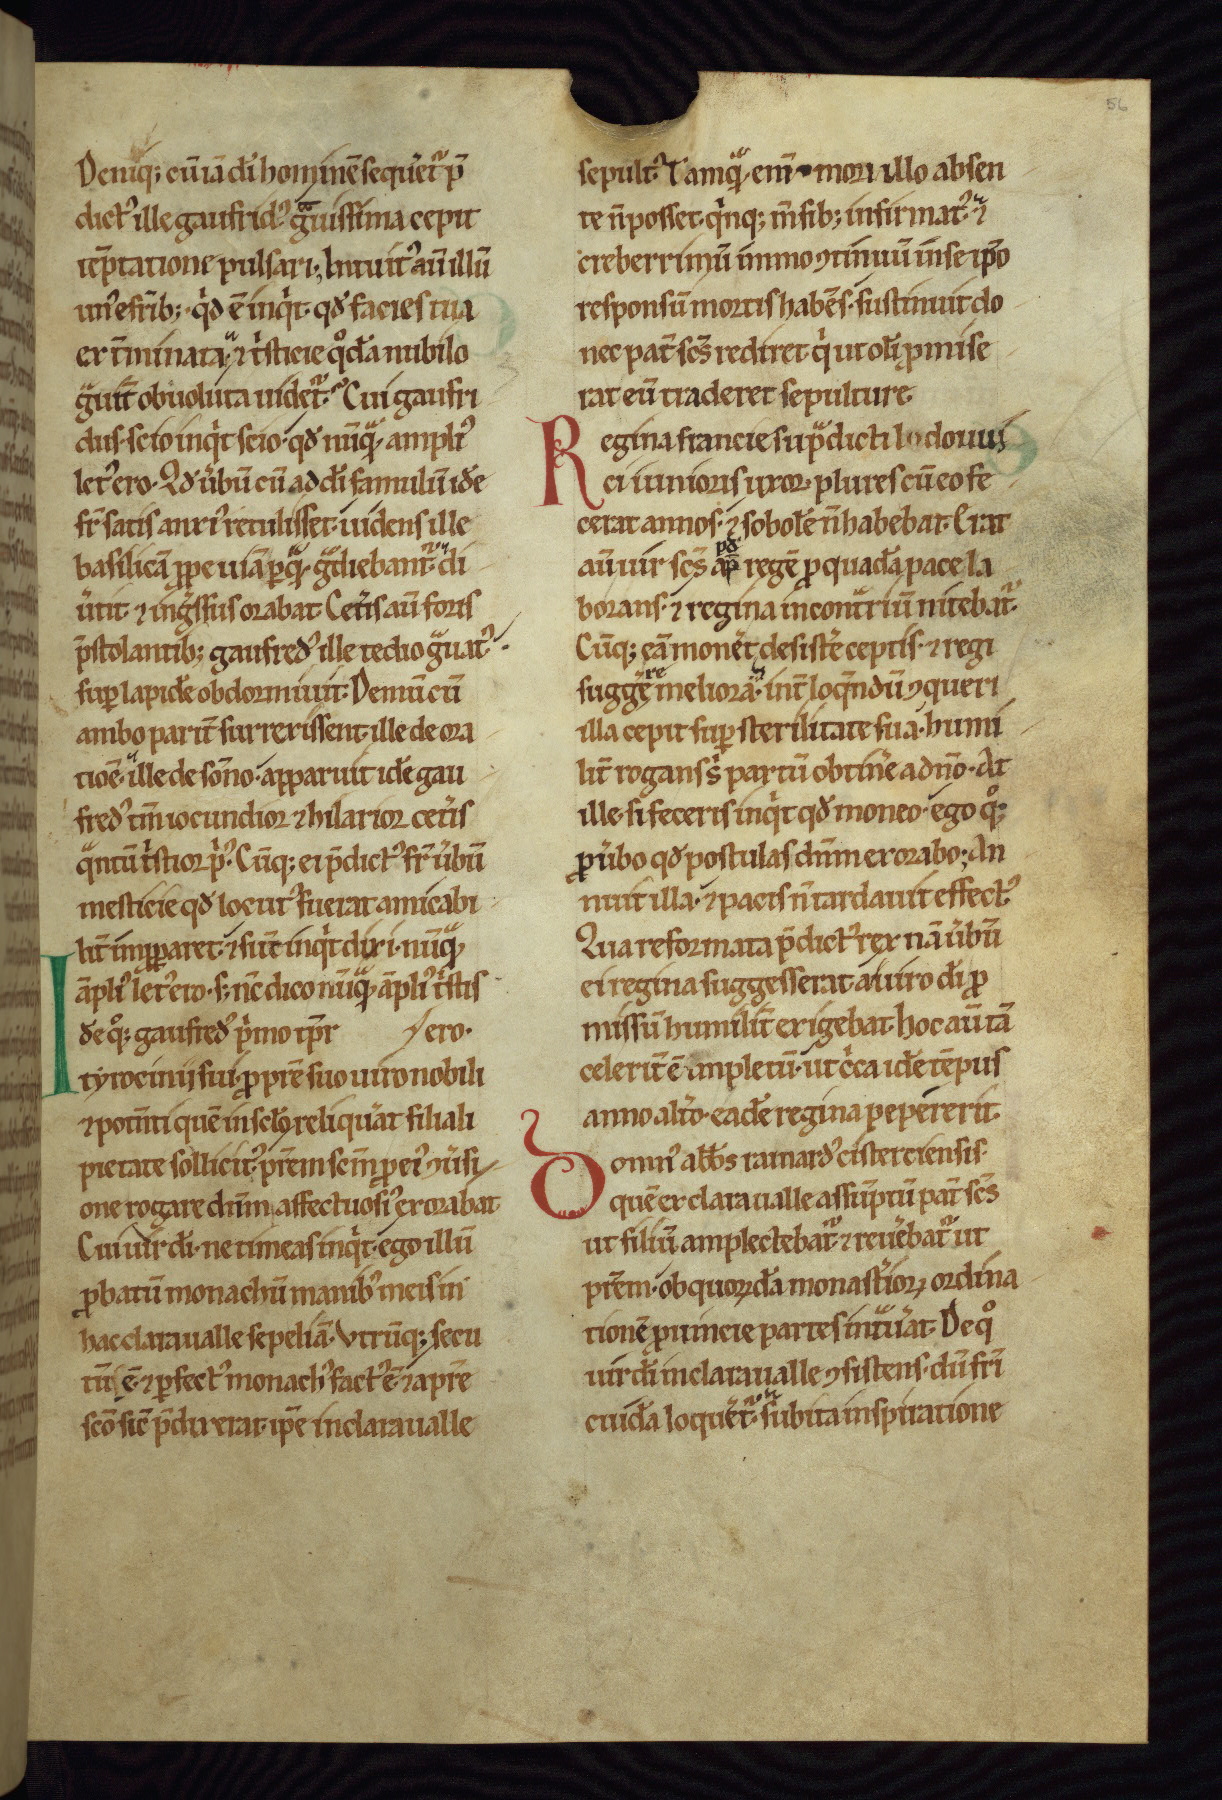 56
Deniq; cū iā dī hominē sequeret̄ p̄
dict᾿ ille gaufrid᾿ gͣuissima cepit
tēptatione pulsari; Intuit᾿ aū illū
un᾿ e frīb; qͥd ē inqͥt. qd̄ facies tua
ext̄minata. ⁊ tͥsticie qͦdā nubilo
gͣuit̄ obuoluta uidet̄. Cui gaufri
dus. scio inqͥt scio. qd̄ nūqͣ ampli᾿
let᾿ ero. Qd̄ ūbū cū ad dī famulū idē
fr̄ satis anxi᾿ retulisset. uidens ille
basilicā ꝓpe uiā ꝑ qͣ gͣdiebant̄. di
ūtit ⁊ ingͤssus orabat. Cet̄is aū foris
p̄stolantib; gaufred᾿ ille tedio gͣuat᾿
suꝑ lapidē obdormiuit. Demū cū
ambo parit̄ surrexissent. ille de ora
tiōe. ille de sōno. apparuit idē gau
fred᾿ tm̄ iocundior ⁊ hilarior cet̄is
qͣntū tͥstior pͥ᾿. Cūq; ei p̄dict᾿ fr̄ ūbū
mesticie qd̄ locut᾿ fuerat amicabi
lit̄ imꝓparet. ⁊ si tūc inqͥt dixi. nūqͣ
āpli᾿ let᾿ ero. s; nc̄ dico nūqͣ āpli᾿ tͥstis
Idē qͦ; gaufred᾿ pͥmo tp̄r ero.
tyrocinij sui ꝓ pr̄e suo uiro nobili
⁊ potn̄ti quē in sclō reliquat filiali
pietate sollicit᾿ pr̄em scm̄ ꝓ ei᾿ ꝯūsi
one rogare dūm affectuosi᾿ exorabat
Cui uir dī. ne timeas inqͥt. ego illū
ꝓbatū monachū manib᾿ meis in
hac claraualle sepeliā. Vtrūq; secu
tū ē. ⁊ ꝑfect᾿ monach᾿ fact᾿ ē. ⁊ a pr̄e
scō sic̄ p̄dixerat. ip̄e in claraualle
sepult᾿. Tamqͣ enī mori illo absen
te n̄ posset. qͥnq; m̄sib; infirmat᾿. ⁊
creberrimū immo ꝯtinuū in se ip̄o
responsū mortis habēs. sustinuit do
nec pat̄ scs̄ rediret. qͥ ut olī ꝓmise
rat eū traderet sepulture.
Regina francie sup̄dicti lodouui
ci iunioris uxor. plures cū eo fe
cerat annos. ⁊ sobolē n̄ habebat. Erat
aū uir scs̄ ap̄ pd̄ regē ꝓ quadā pace la
borans. ⁊ regina in contͣriū nitebat̄.
Cūq; eā monet̄ desistē ceptis. ⁊ regi
suggerē meliora. int̄ loqͤndū ꝯqueri
illa cepit suꝑ sterilitate sua. humi
lit̄ rogans sͥ partū obtinē a dn̄o. At
ille. si feceris inqͥt qd̄ moneo. ego qͦ;
ꝓ ūbo qd̄ postulas dūm exorabo; An
nuit illa. ⁊ pacis n̄ tardauit effect᾿
Qua reformata p̄dict᾿ rex nā ūbū
ei regina suggesserat. a uiro dī ꝓ
missū humilit̄ exigebat. hoc aū tā
celerit̄ ē impletū. ut cͥca idē tēpus
anno altͦo. eadē regina pepererit.
Domn᾿ abb̄s rainard᾿ cisterciensis.
quē ex claraualle assūptū pat̄ scs̄
ut filiū amplectebat̄. ⁊ reuēbat̄ ut
pr̄em. ob quorꝫdā monastͥiorꝫ ordina
tionē ꝓuincie partes intͣuat. De qͦ
uir dī in claraualle ꝯsistens. dū fr̄i
cuidā loqueret̄. subita inspiratione